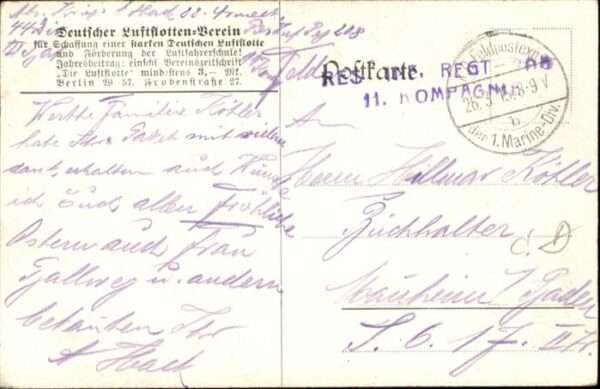 Abs. Kriegs Hack 22. Armeek
44 Di
Deutscher Luftflotten-Verein
für Schaffung einer starken Deutschen Luftflotte
und Förderung der Luftfahrerschule!
Jahresbeitrag: einschl Vereinszeitschrift
„Die Luftflotte“ mindestens 3,— Mk.
Berlin W 57. Frobenstraße 27.
208
Feld
Postkarte
RES INF. REGT
11. KOMPAGNIE
Feldpostexp.
26.3 8-9 V
b
der 1. Marine-Div.
Werthe Familie Köhler
habe Ihr Paket mit vielen
dank erhalten auch Wünsche
ich Euch allen Fröhliche
Ostern auch Frau
Gallweg u. andern
bekannten Ihr
A Hack
An
Herrn Hillmar Köhler
Buchhalter
Manheim / Baden
S. 6. 17. II